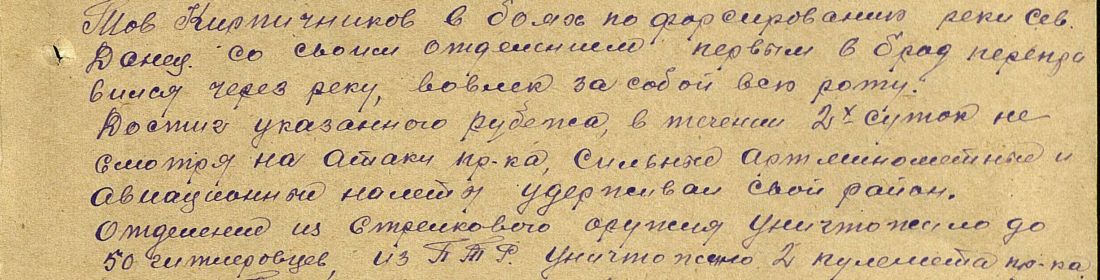 Тов Кирпичников в боях по форсированию реки Сев.
Донец. со своим отделением первым в брод перепра
вился через реку, вовлек за собой всю роту.
Достиг указанного рубежа, в течении 2х суток не
смотря на атаки пр-ка, сильные артминометные и
авиационные налеты удерживал свой район.
Отделение из стрелкового оружия уничтожило до
50 гитлеровцев, из ПТР. уничтожено 2 пулемета пр-ка